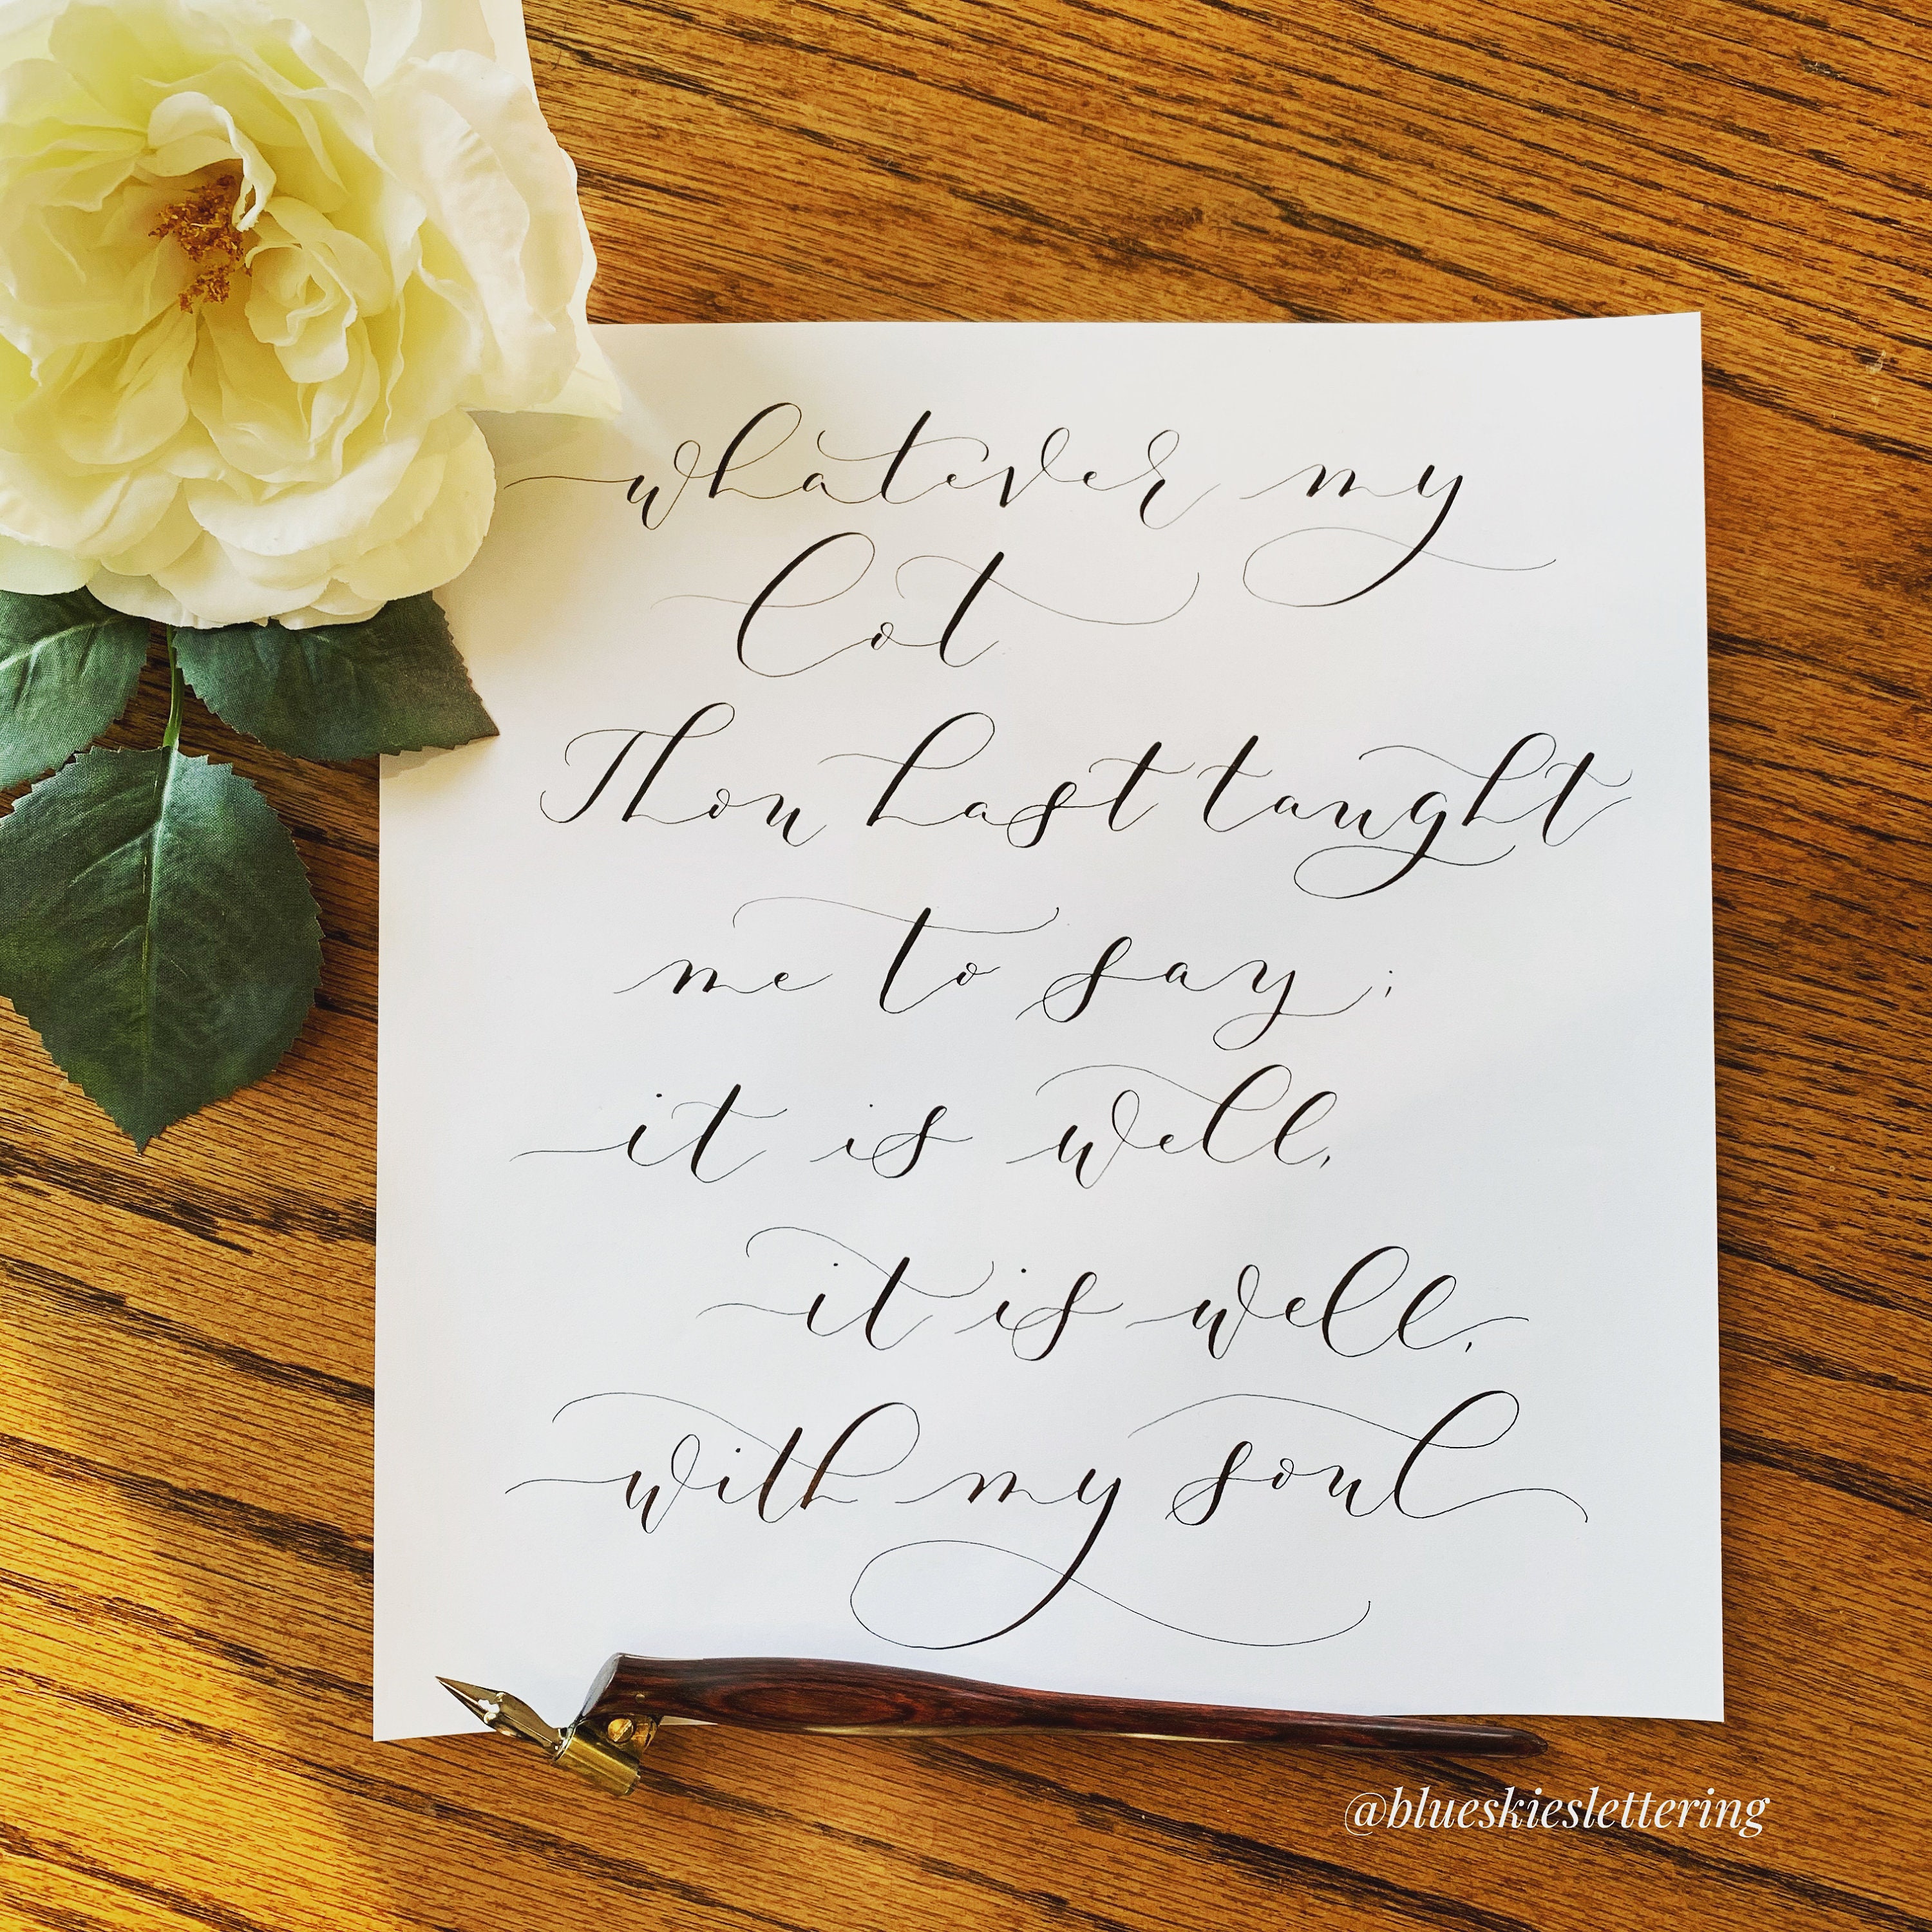 whatever my
lot
Thou hast taught
me to say;
it is well,
it is well,
with my soul
@blueskieslettering